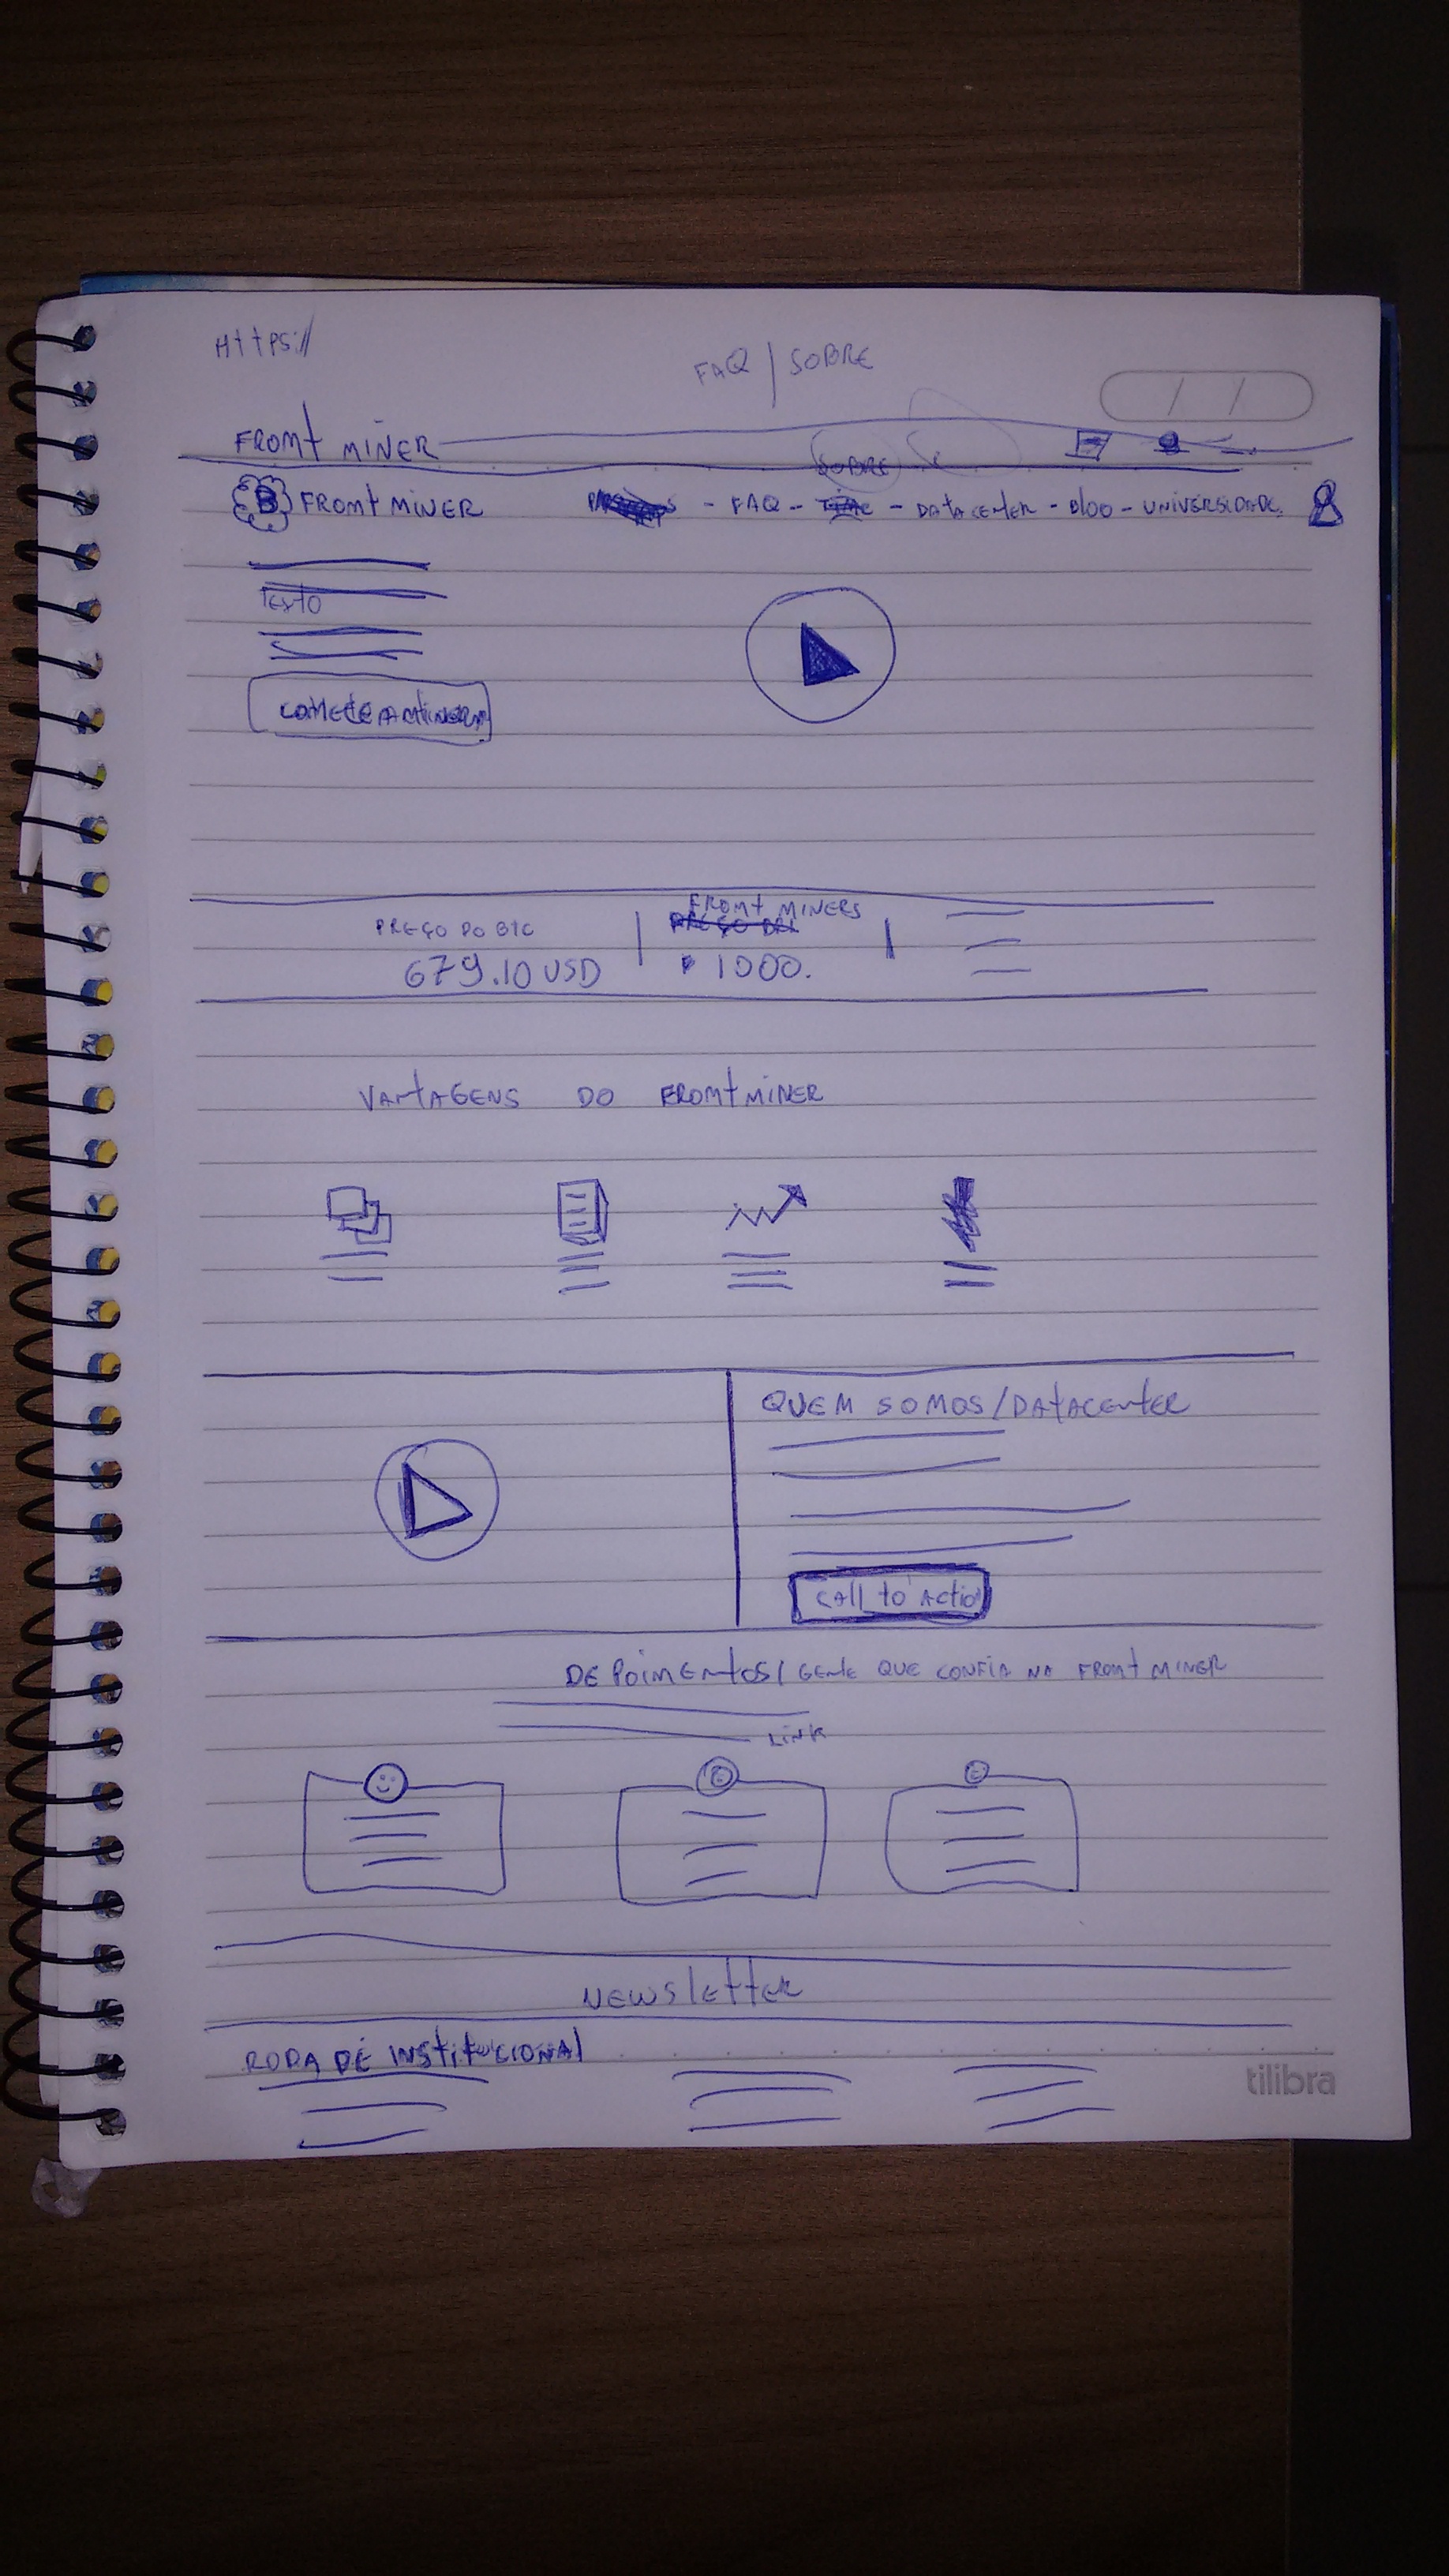 Https://
FAQ | SOBRE
FRONT MINER
SOBRE
B FRONT MINER - FAQ - - DATACENTER - BLOG - UNIVERSIDADE
TEXTO
COMECE A MINERAR
PREÇO DO BTC
679.10 USD
FRONT MINERS
1000.
VANTAGENS DO FRONT MINER
QUEM SOMOS/DATACENTER
CALL to ACTIO
DEPOIMENTOS/ GENTE QUE CONFIA NA FRONT MINER
LINK
NEWSLETTER
RODA DE INSTITUCIONAL
tilibra